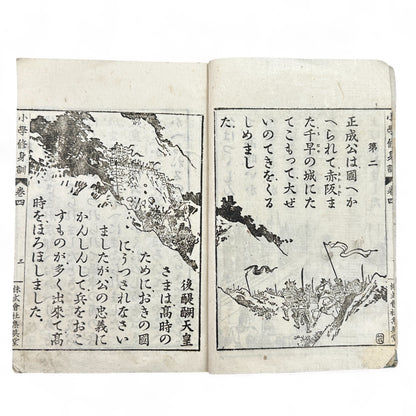 小學修身訓 卷四
第二
正成公は國へか
へられて赤阪ま
た千早の城にた
てこもって、大ぜ
いのてきをくる
しめまし
た
後醍醐天皇
さまは、高時の
ためにおきの國
にうつされなさい
ましたが公の忠義に
かんしんして、兵をおこ
すものが多く出來て、高
時をほろぼしました。
小學修身訓 卷四
三
株式會社集英堂